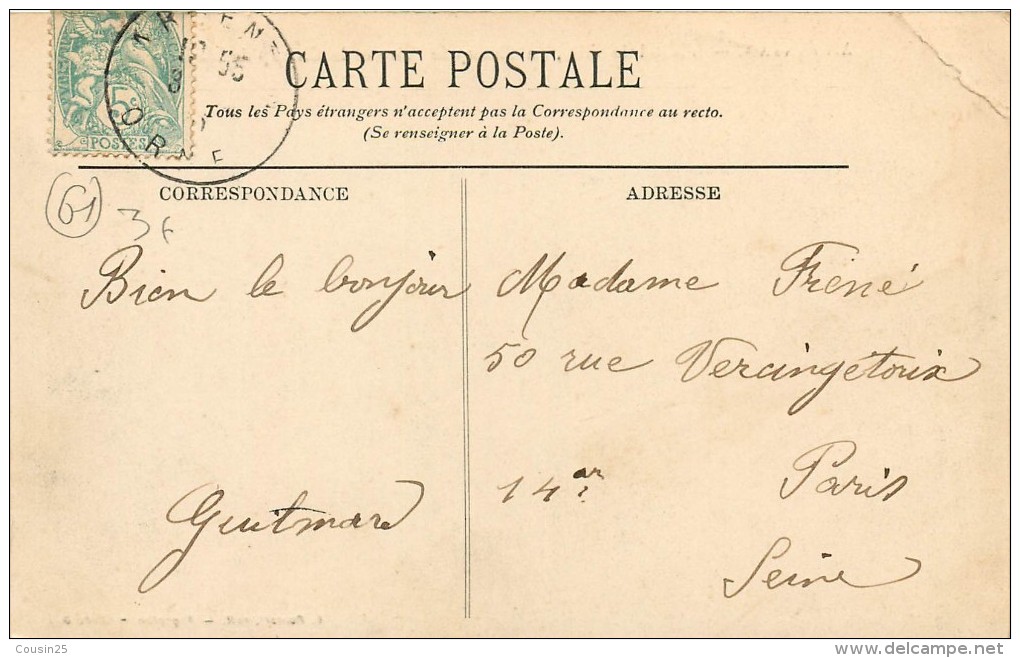 CARTE POSTALE
Tous les Pays étrangers n'acceptent pas la Correspondance au recto.
(Se renseigner à la Poste).
5c
POSTES
ORNE
61
3F
CORRESPONDANCE
ADRESSE
Bien le bonjour
Guitmard
Madame Fréné
50 rue Vercingétorix
14 ar
Paris
Seine
Cousin25
delcampe.net